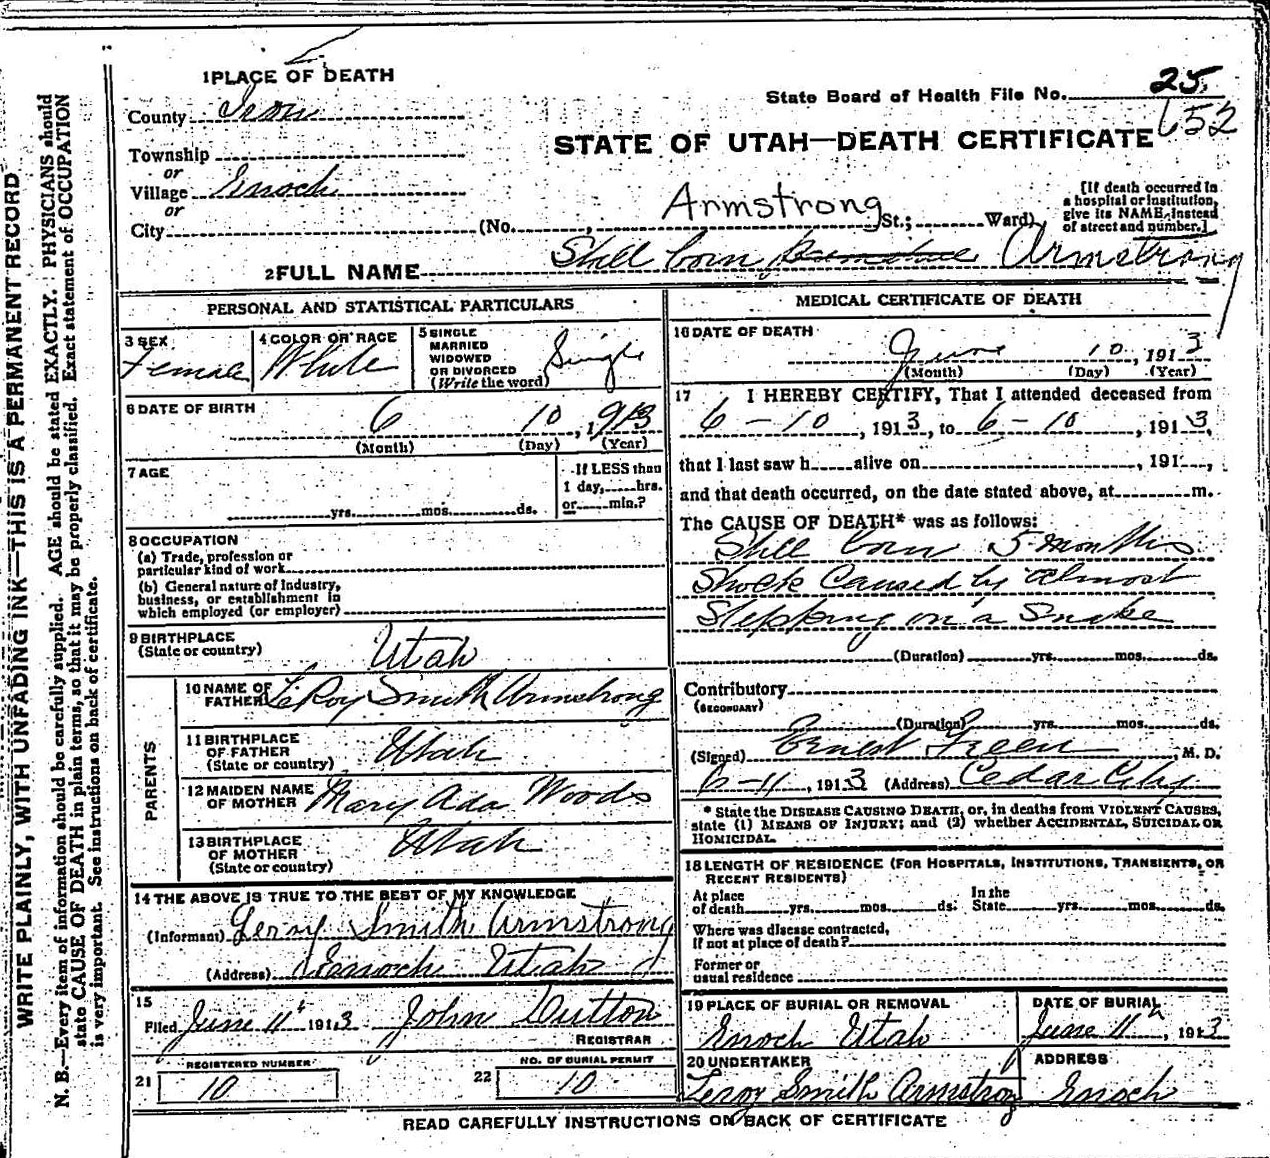 1 PLACE OF DEATH
County Iron
Township
or
Village Enoch
or
City (No. , Armstrong St.; Ward)
State Board of Health File No. 25
652
STATE OF UTAH—DEATH CERTIFICATE
[If death occurred in
a hospital or institution,
give its NAME instead
of street and number.]
2 FULL NAME Still born Armstrong
PERSONAL AND STATISTICAL PARTICULARS
3 SEX
Female
4 COLOR OR RACE
White
5 SINGLE
MARRIED
WIDOWED
OR DIVORCED
(Write the word)
Single
6 DATE OF BIRTH
6 10, 1913
(Month) (Day) (Year)
7 AGE
yrs. mos. ds.
If LESS than
1 day, hrs.
or min.?
8 OCCUPATION
(a) Trade, profession or
particular kind of work
(b) General nature of Industry,
business, or establishment in
which employed (or employer)
9 BIRTHPLACE
(State or country)
Utah
PARENTS
10 NAME OF
FATHER LeRoy Smith Armstrong
11 BIRTHPLACE
OF FATHER
(State or country)
Utah
12 MAIDEN NAME
OF MOTHER Mary Ada Woods
13 BIRTHPLACE
OF MOTHER
(State or country)
Utah
14 THE ABOVE IS TRUE TO THE BEST OF MY KNOWLEDGE
(Informant) Leroy Smith Armstrong
(Address) Enoch Utah
15
Filed June 11th 1913 John Dutton
REGISTRAR
REGISTERED NUMBER
21 10
NO. OF BURIAL PERMIT
22 10
MEDICAL CERTIFICATE OF DEATH
16 DATE OF DEATH
June 10, 1913
(Month) (Day) (Year)
17 I HEREBY CERTIFY, That I attended deceased from
6 - 10, 1913, to 6 - 10, 1913,
that I last saw h alive on , 191 ,
and that death occurred, on the date stated above, at m.
The CAUSE OF DEATH* was as follows:
Still born 5 months
Shock Caused by almost
Stepping on a Snake
(Duration) yrs. mos. ds.
Contributory
(SECONDARY)
(Duration) yrs. mos. ds.
(Signed) Ernest Green M. D.
6-11, 1913 (Address) Cedar City
* State the DISEASE CAUSING DEATH, or, in deaths from VIOLENT CAUSES,
state (1) MEANS OF INJURY; and (2) whether ACCIDENTAL, SUICIDAL OR
HOMICIDAL.
18 LENGTH OF RESIDENCE (FOR HOSPITALS, INSTITUTIONS, TRANSIENTS, OR
RECENT RESIDENTS)
At place
of death yrs. mos. ds.
In the
State yrs. mos. ds.
Where was disease contracted,
If not at place of death?
Former or
usual residence
19 PLACE OF BURIAL OR REMOVAL
Enoch Utah
DATE OF BURIAL
June 11th, 1913
20 UNDERTAKER
Leroy Smith Armstrong
ADDRESS
Enoch
READ CAREFULLY INSTRUCTIONS ON BACK OF CERTIFICATE
WRITE PLAINLY, WITH UNFADING INK—THIS IS A PERMANENT RECORD
N. B.—Every item of information should be carefully supplied. AGE should be stated EXACTLY. PHYSICIANS should
state CAUSE OF DEATH in plain terms, so that it may be properly classified. Exact statement of OCCUPATION
is very important. See instructions on back of certificate.